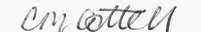 CM Cottell